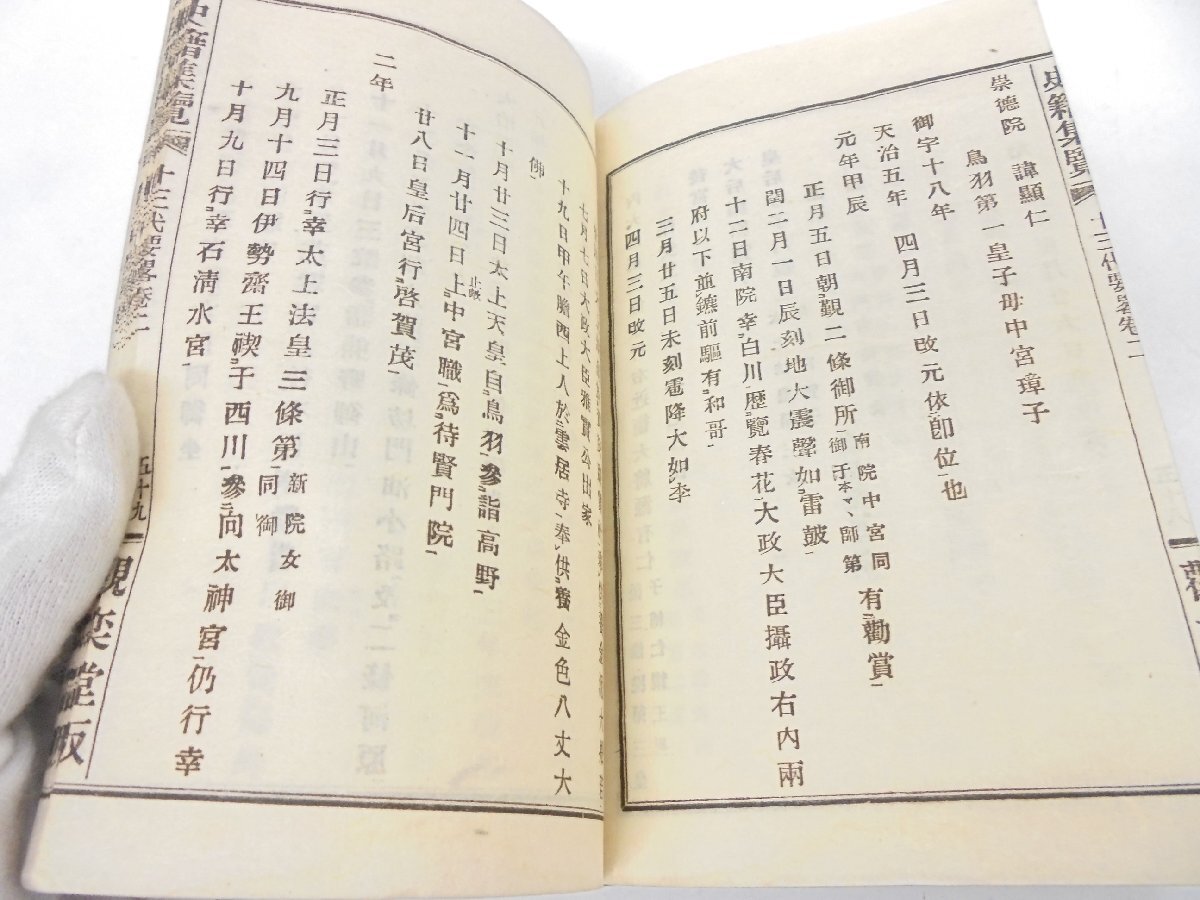 史籍集覽 十三代要畧卷二
崇德院 諱顯仁
鳥羽第一皇子母中宮璋子
御宇十八年
天治五年 四月三日改元依即位也
元年甲辰
正月五日朝覲二條御所 南院中宮同御 有勸賞
閏二月一日辰刻地大震聲如雷皷
十二日南院幸白川歷覽春花大政大臣攝政右内兩
府以下並鑣前驅有和哥
三月廿五日未刻雹降大如李
四月三日改元
七月七日太政大臣雅實公出家
十九日甲午瞻西上人於雲居寺奉供養金色八丈大
佛
十月廿三日太上天皇自鳥羽參詣高野
十一月廿四日上中宮職爲待賢門院
廿八日皇后宮行啓賀茂
二年
正月三日行幸太上法皇三條第 新院女御同御
九月十四日伊勢齋王禊于西川參向太神宮仍行幸
十月九日行幸石淸水宮
史籍集覽 十三代要畧卷二 五十九 觀奕堂版